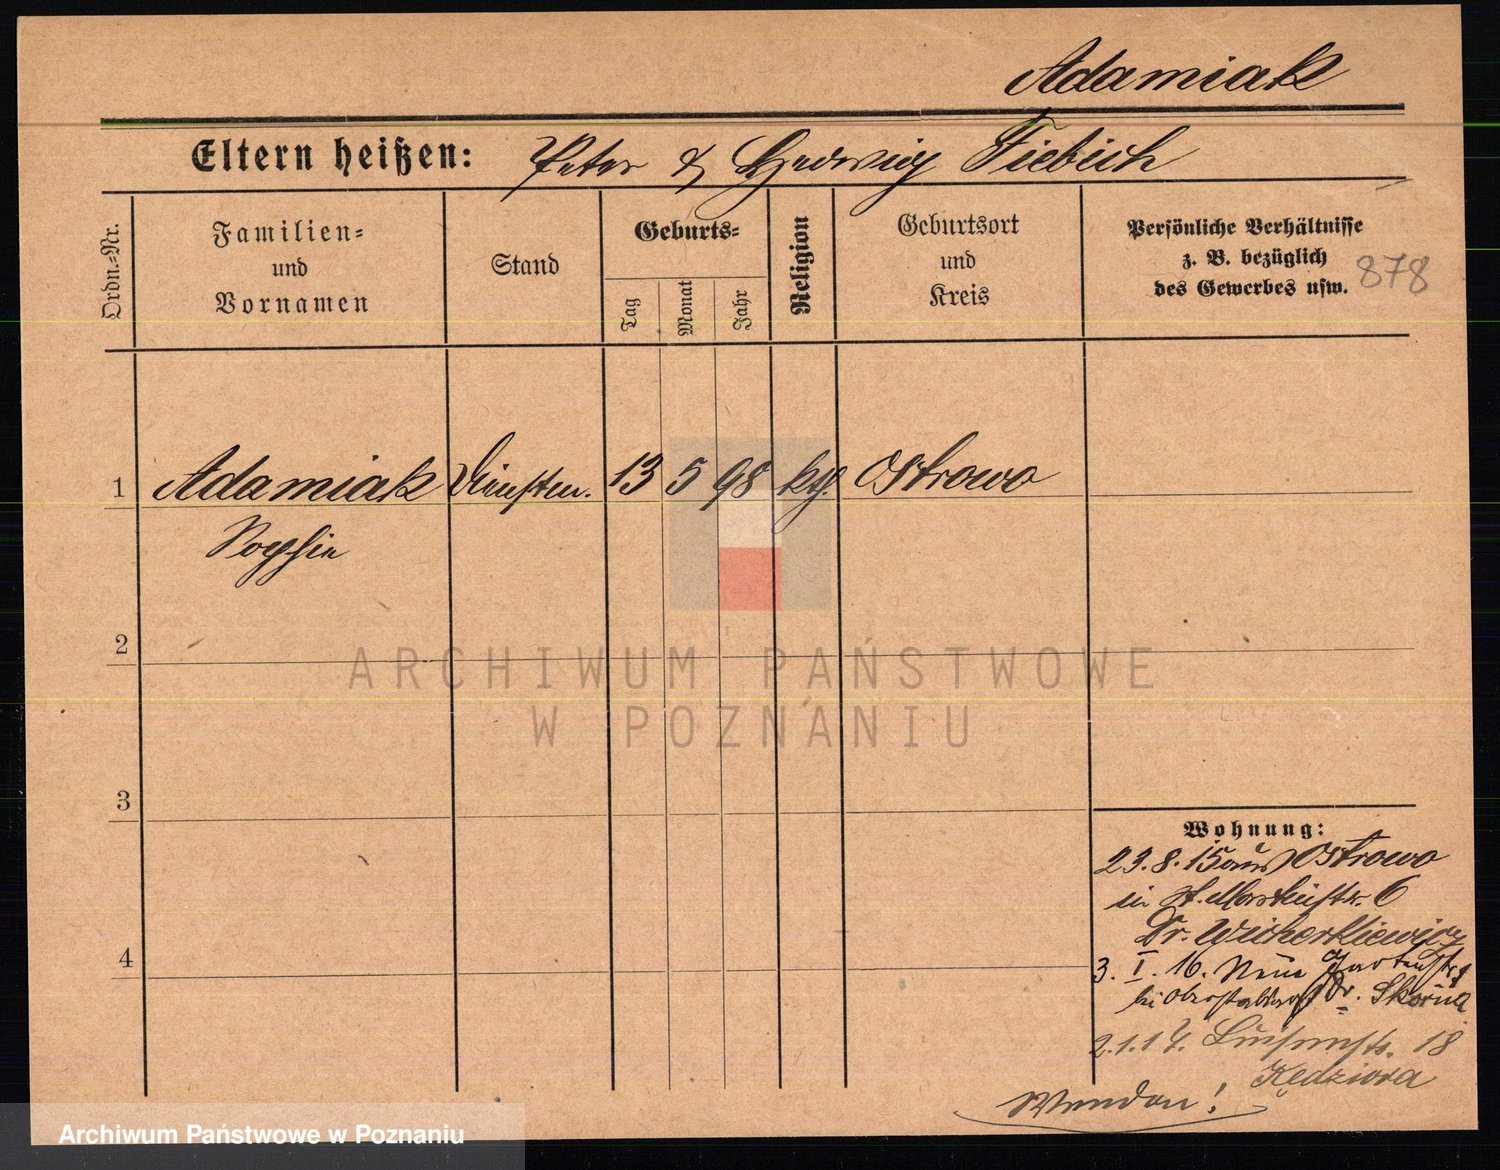 Adamiak
Eltern heißen: Peter & Hedwig Fiebich
Ordn.=Nr.
Familien=
und
Vornamen
Stand
Geburts=
Tag
Monat
Jahr
Religion
Geburtsort
und
Kreis
Persönliche Verhältnisse
z. B. bezüglich
des Gewerbes usw.
878
1 Adamiak 13 5 98 kth. Ostrowo
Sophie
2
ARCHIWUM PAŃSTWOWE
W POZNANIU
3
Wohnung:
23.8.15 aus Ostrowo
in St. Martinstr. 6
Dr. Wicherkiewicz
4
3. I. 16. Neue Gartenstr.
bei Dr. Skorna
2.1.17. Luisenstr. 18
Kędziora
Wenden!
Archiwum Państwowe w Poznaniu